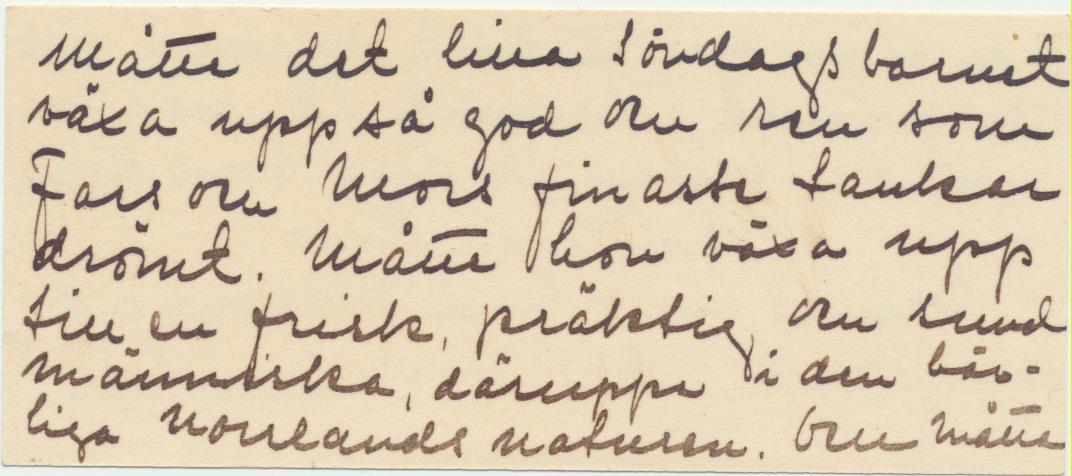 Måtte det lilla Söndagsbarnet
växa upp så god och ren som
Fars och Mors finaste tankar
drömt. Måtte hon växa upp
till en frisk, präktig, och sund
människa, däruppe i den här-
liga Norrlands naturen. Och måtte